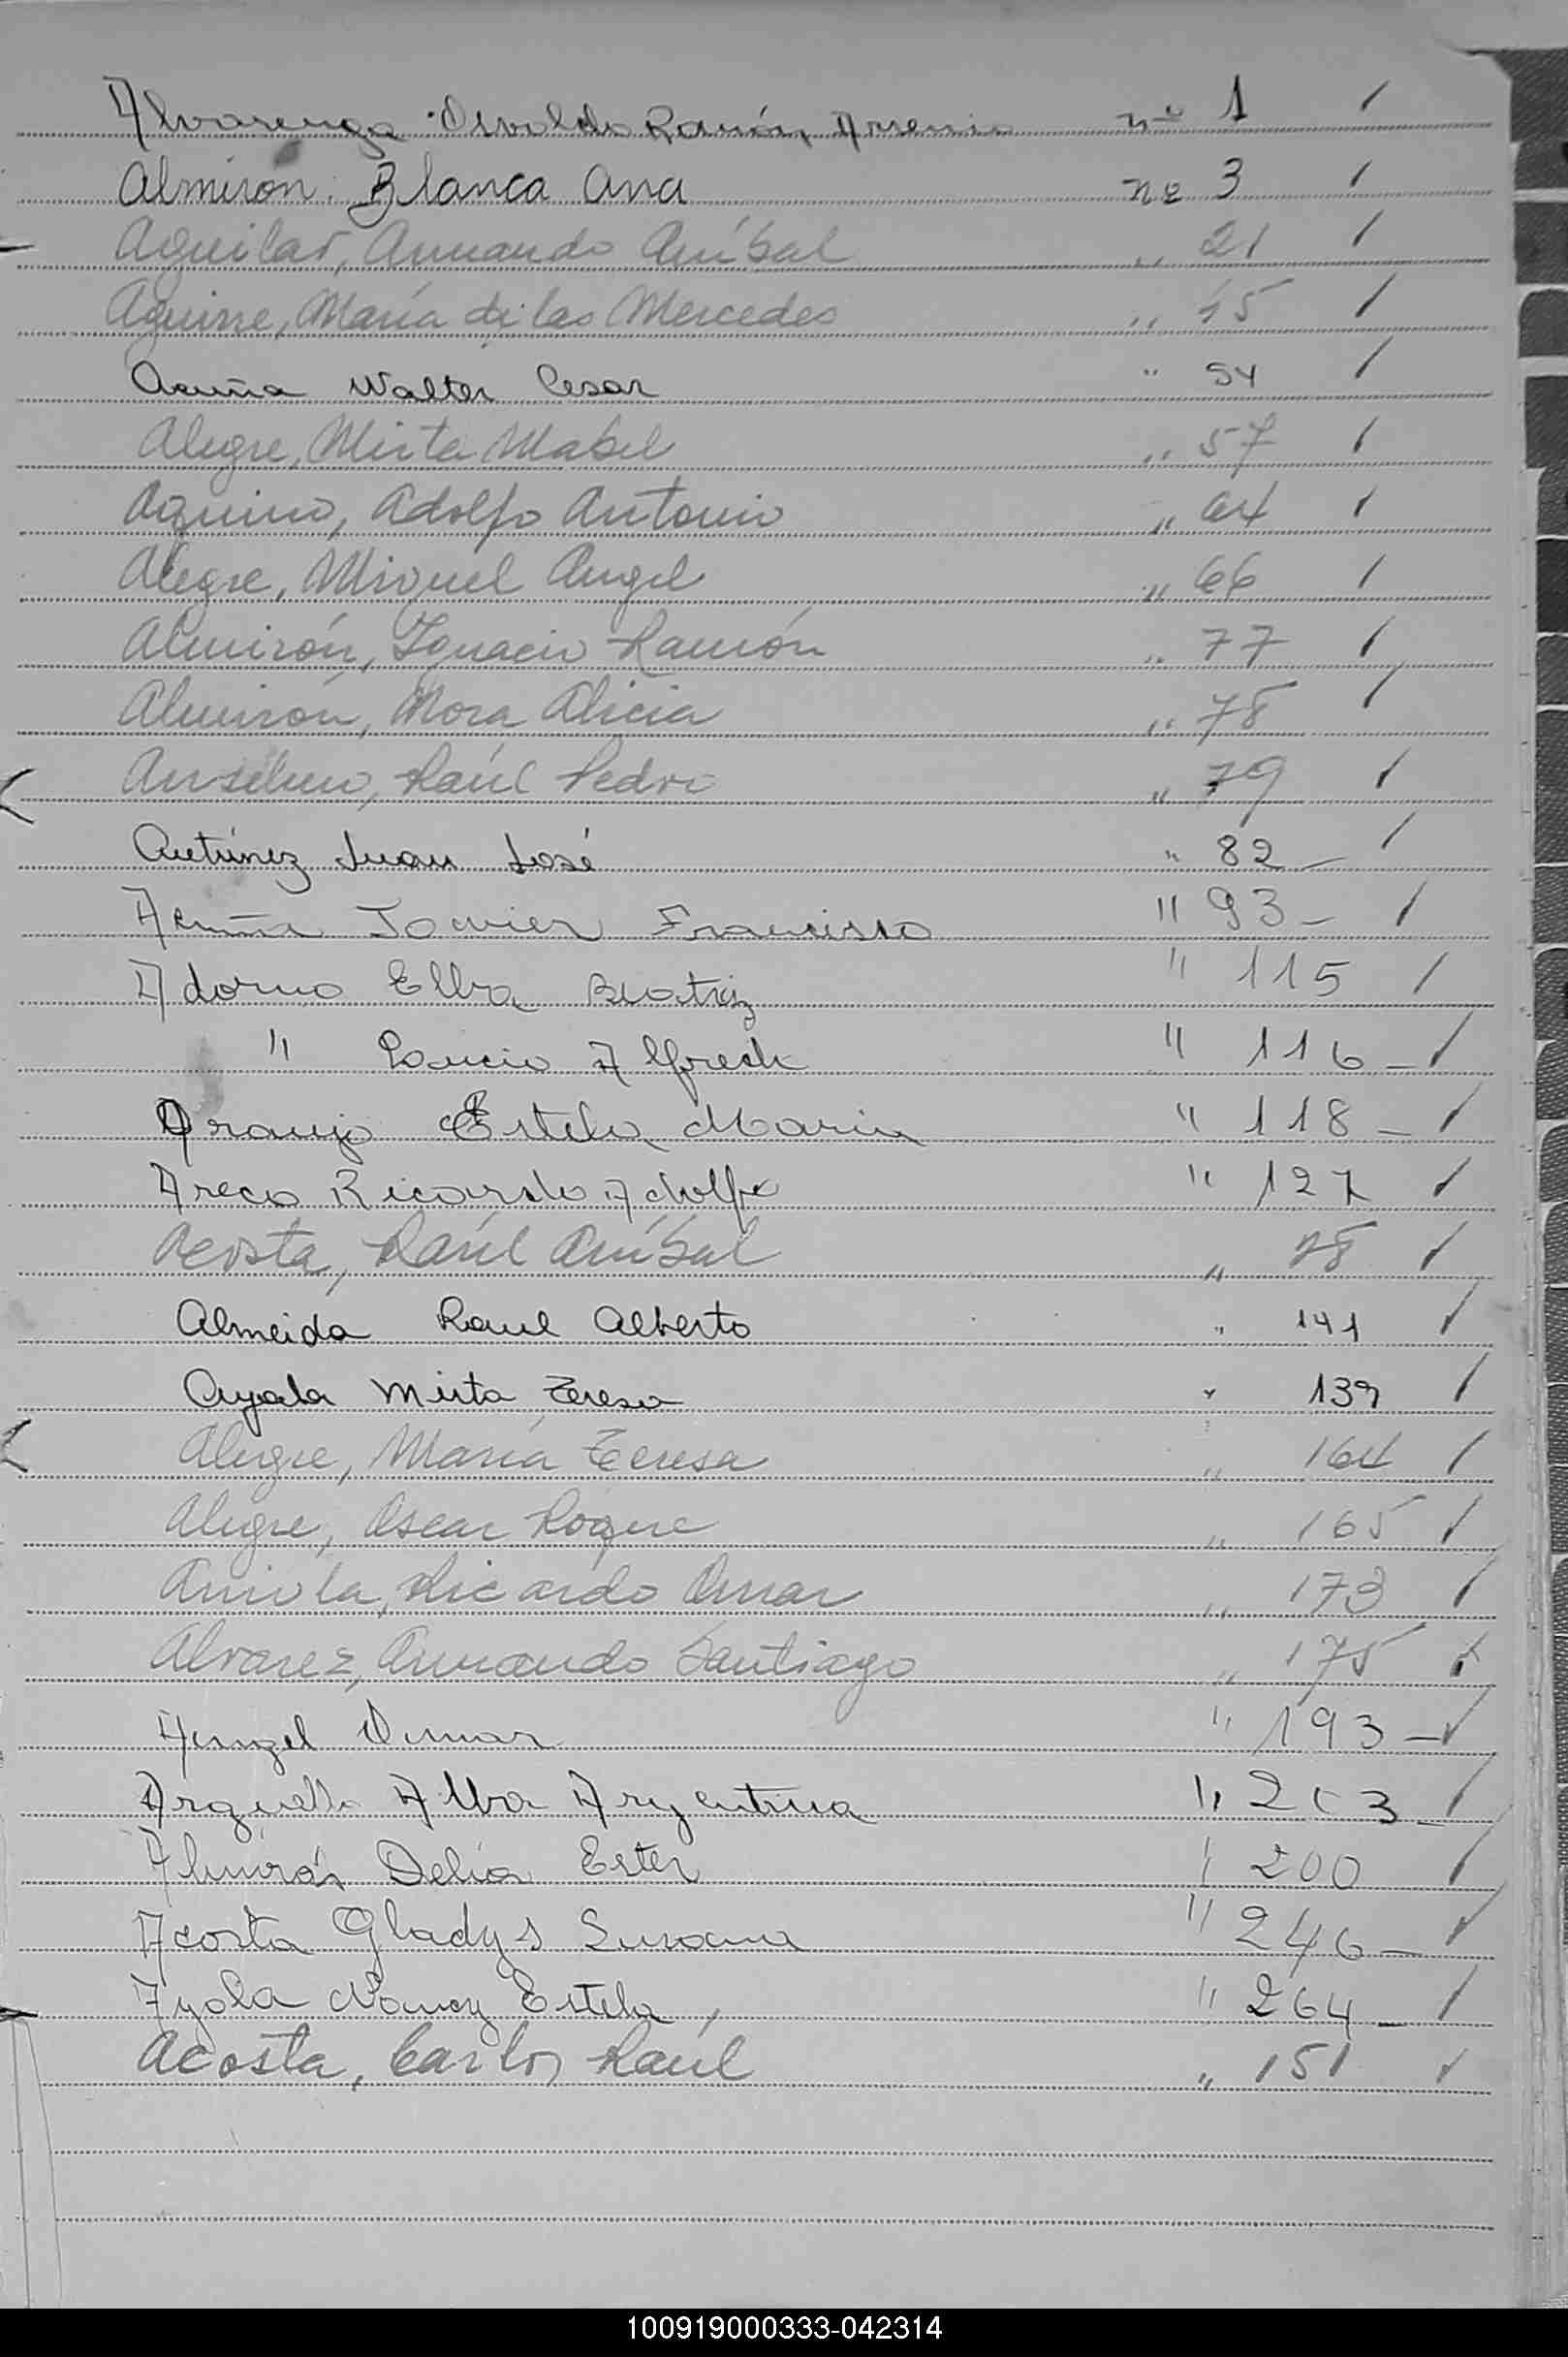 Alvarenga Osvaldo Ramón Arsenio nº 1 /
Almirón. Blanca Ana nº 3 /
Aguilar, Armando Aníbal " 21 /
Aguirre, María de las Mercedes " 45 /
Acuña Walter Cesar " 54 /
Alegre, Mirta Mabel " 57 /
Aquino, Adolfo Antonio " 64 /
Alegre, Miguel Angel " 66 /
Almirón, Ignacio Ramón " 77 /
Almirón, Nora Alicia " 78 /
Anselmo, Raúl Pedro " 79 /
Antúnez Juan José " 82 - /
Acuña Javier Francisco " 93 - /
Adorno Elba Beatriz " 115 /
" Lucio Alfredo " 116 - /
Araujo Estela Maria " 118 - /
Areco Ricardo Adolfo " 127 /
Acosta, Raúl Aníbal " 78 /
Almeida Raul Alberto " 141 /
Ayala Mirta Teresa " 139 /
Alegre, María Teresa " 164 /
Alegre, Oscar Roque " 165 /
Ricardo Omar " 173 /
Alvarez, Armando Santiago " 175 /
Omar " 193 - /
Arguello Alba Argentina " 203 - /
Almirón Delia Ester " 200 /
Acosta Gladys Susana " 246 - /
Ayala Nancy Estela " 264 - /
Acosta, Carlos Raúl " 151 /
100919000333-042314